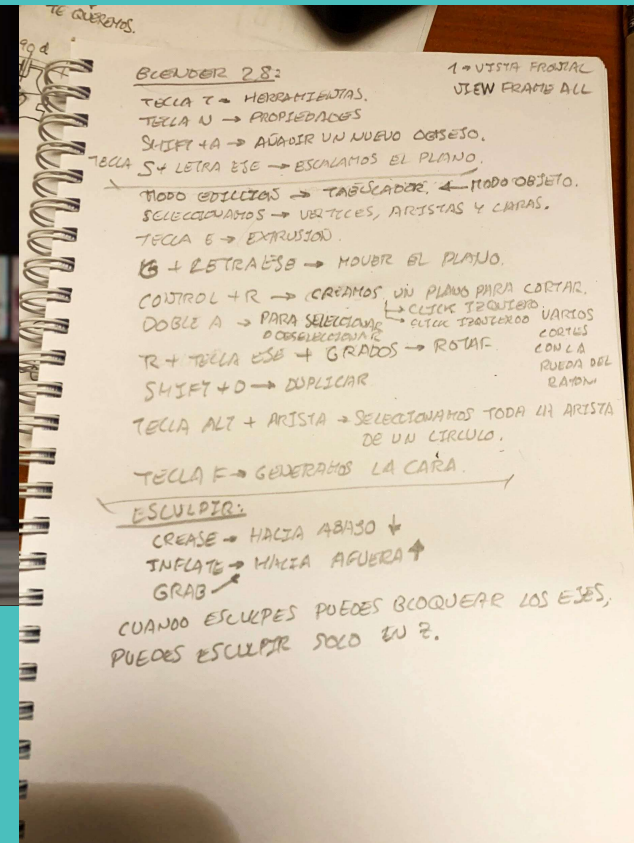 TE QUEREMOS.
BLENDER 2.8:
1 → VISTA FRONTAL
VIEW FRAME ALL
TECLA T → HERRAMIENTAS.
TECLA N → PROPIEDADES
SHIFT + A → AÑADIR UN NUEVO OBJEJO.
TECLA S + LETRA EJE → ESCALAMOS EL PLANO.
MODO EDICCION → TABULADOR. ← MODO OBJETO.
SELECCIONAMOS → VERTICES, ARISTAS Y CARAS.
TECLA E → EXTRUSION.
G + LETRA EJE → MOVER EL PLANO.
CONTROL + R → CREAMOS UN PLANO PARA CORTAR.
→ CLICK IZQUIERO.
→ CLICK IZQUIERDO VARIOS
CORTES
CON LA
RUEDA DEL
RATON
DOBLE A → PARA SELECCIONAR
O DESELECCIONAR
R + TECLA EJE + GRADOS → ROTAR
SHIFT + D → DUPLICAR
TECLA ALT + ARISTA → SELECCIONAMOS TODA LA ARISTA
DE UN CIRCULO.
TECLA F → GENERAMOS LA CARA.
ESCULPIR:
CREASE → HACIA ABAJO ↓
INFLATE → HACIA AFUERA ↑
GRAB
CUANDO ESCULPES PUEDES BLOQUEAR LOS EJES,
PUEDES ESCULPIR SOLO EN Z.